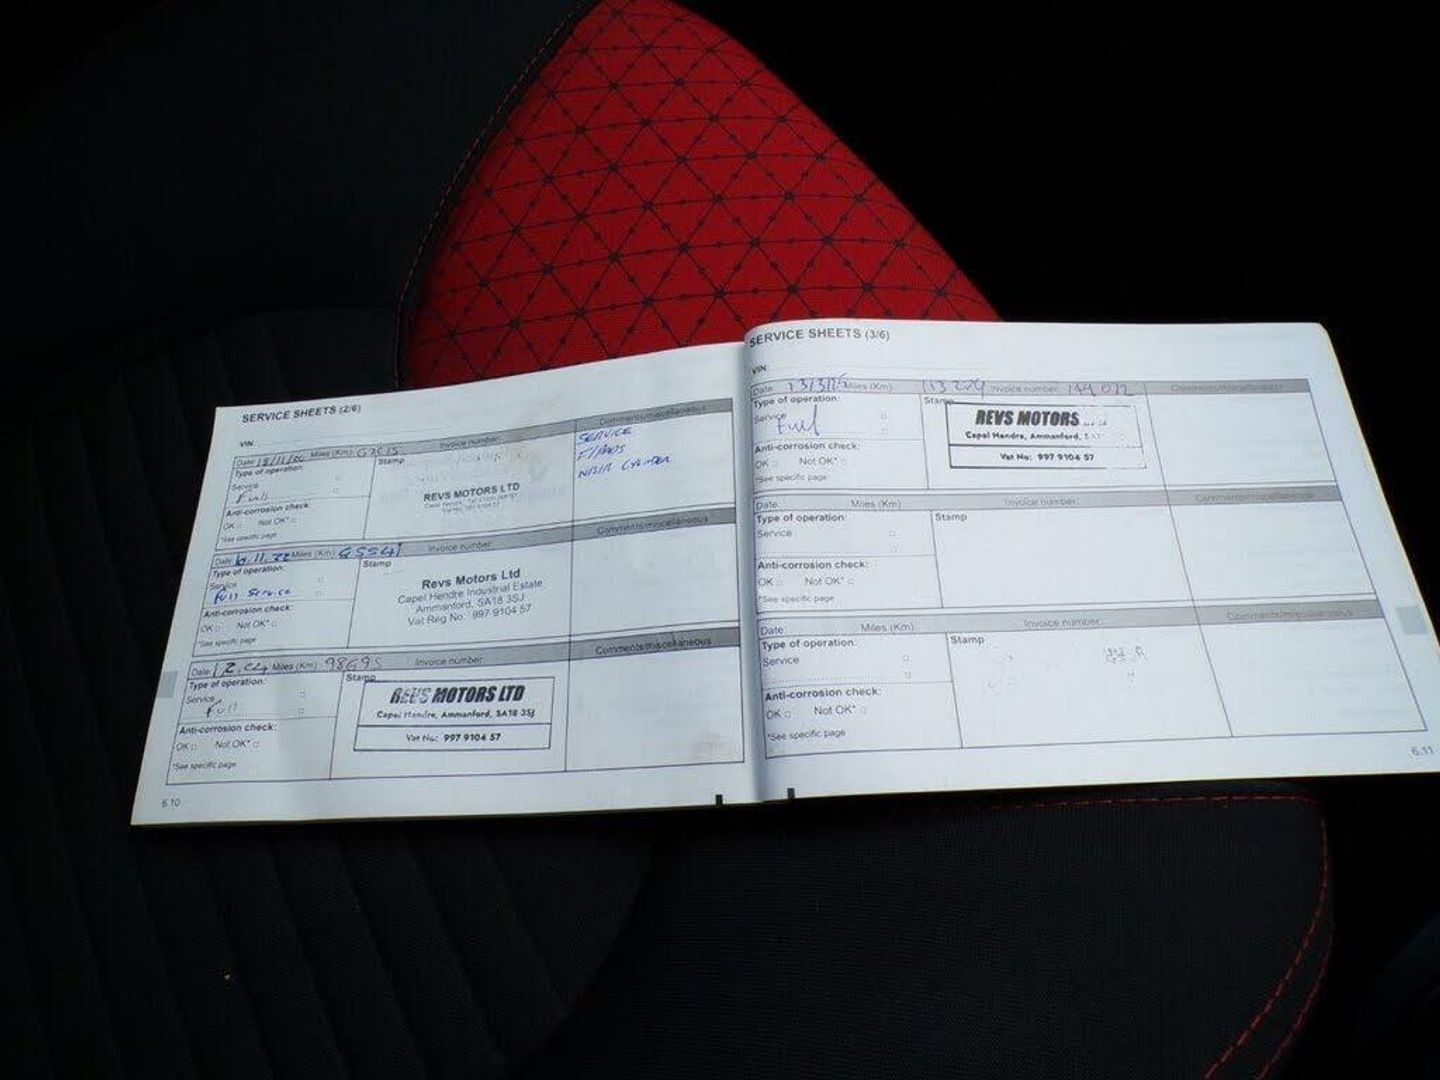 SERVICE SHEETS (2/6)
VIN
Date: Miles (Km) Invoice number: Comments/miscellaneous
Type of operation:
Service
Full
Stamp
REVS MOTORS LTD
SERVICE
F/PADS
CYLINDER
Anti-corrosion check:
OK Not OK*
*See specific page
Date: Miles (Km) Invoice number: Comments/miscellaneous
Type of operation:
Service
Full Service
Stamp
Revs Motors Ltd
Capel Hendre Industrial Estate
Ammanford, SA18 3SJ
Vat Reg No: 997 9104 57
Anti-corrosion check:
OK Not OK*
*See specific page
Date: Miles (Km) 98695 Invoice number: Comments/miscellaneous
Type of operation:
Service
Full
Stamp
REVS MOTORS LTD
Capel Hendre, Ammanford, SA18 3SJ
Vat No: 997 9104 57
Anti-corrosion check:
OK Not OK*
*See specific page
6.10
SERVICE SHEETS (3/6)
VIN
Date: Miles (Km) Invoice number: Comments/miscellaneous
Type of operation:
Service
Full
Stamp
REVS MOTORS
Capel Hendre, Ammanford,
Vat No: 997 9104 57
Anti-corrosion check:
OK Not OK*
*See specific page
Date: Miles (Km) Invoice number: Comments/miscellaneous
Type of operation:
Service
Stamp
Anti-corrosion check:
OK Not OK*
*See specific page
Date: Miles (Km) Invoice number: Comments/miscellaneous
Type of operation:
Service
Stamp
Anti-corrosion check:
OK Not OK*
*See specific page
6.11